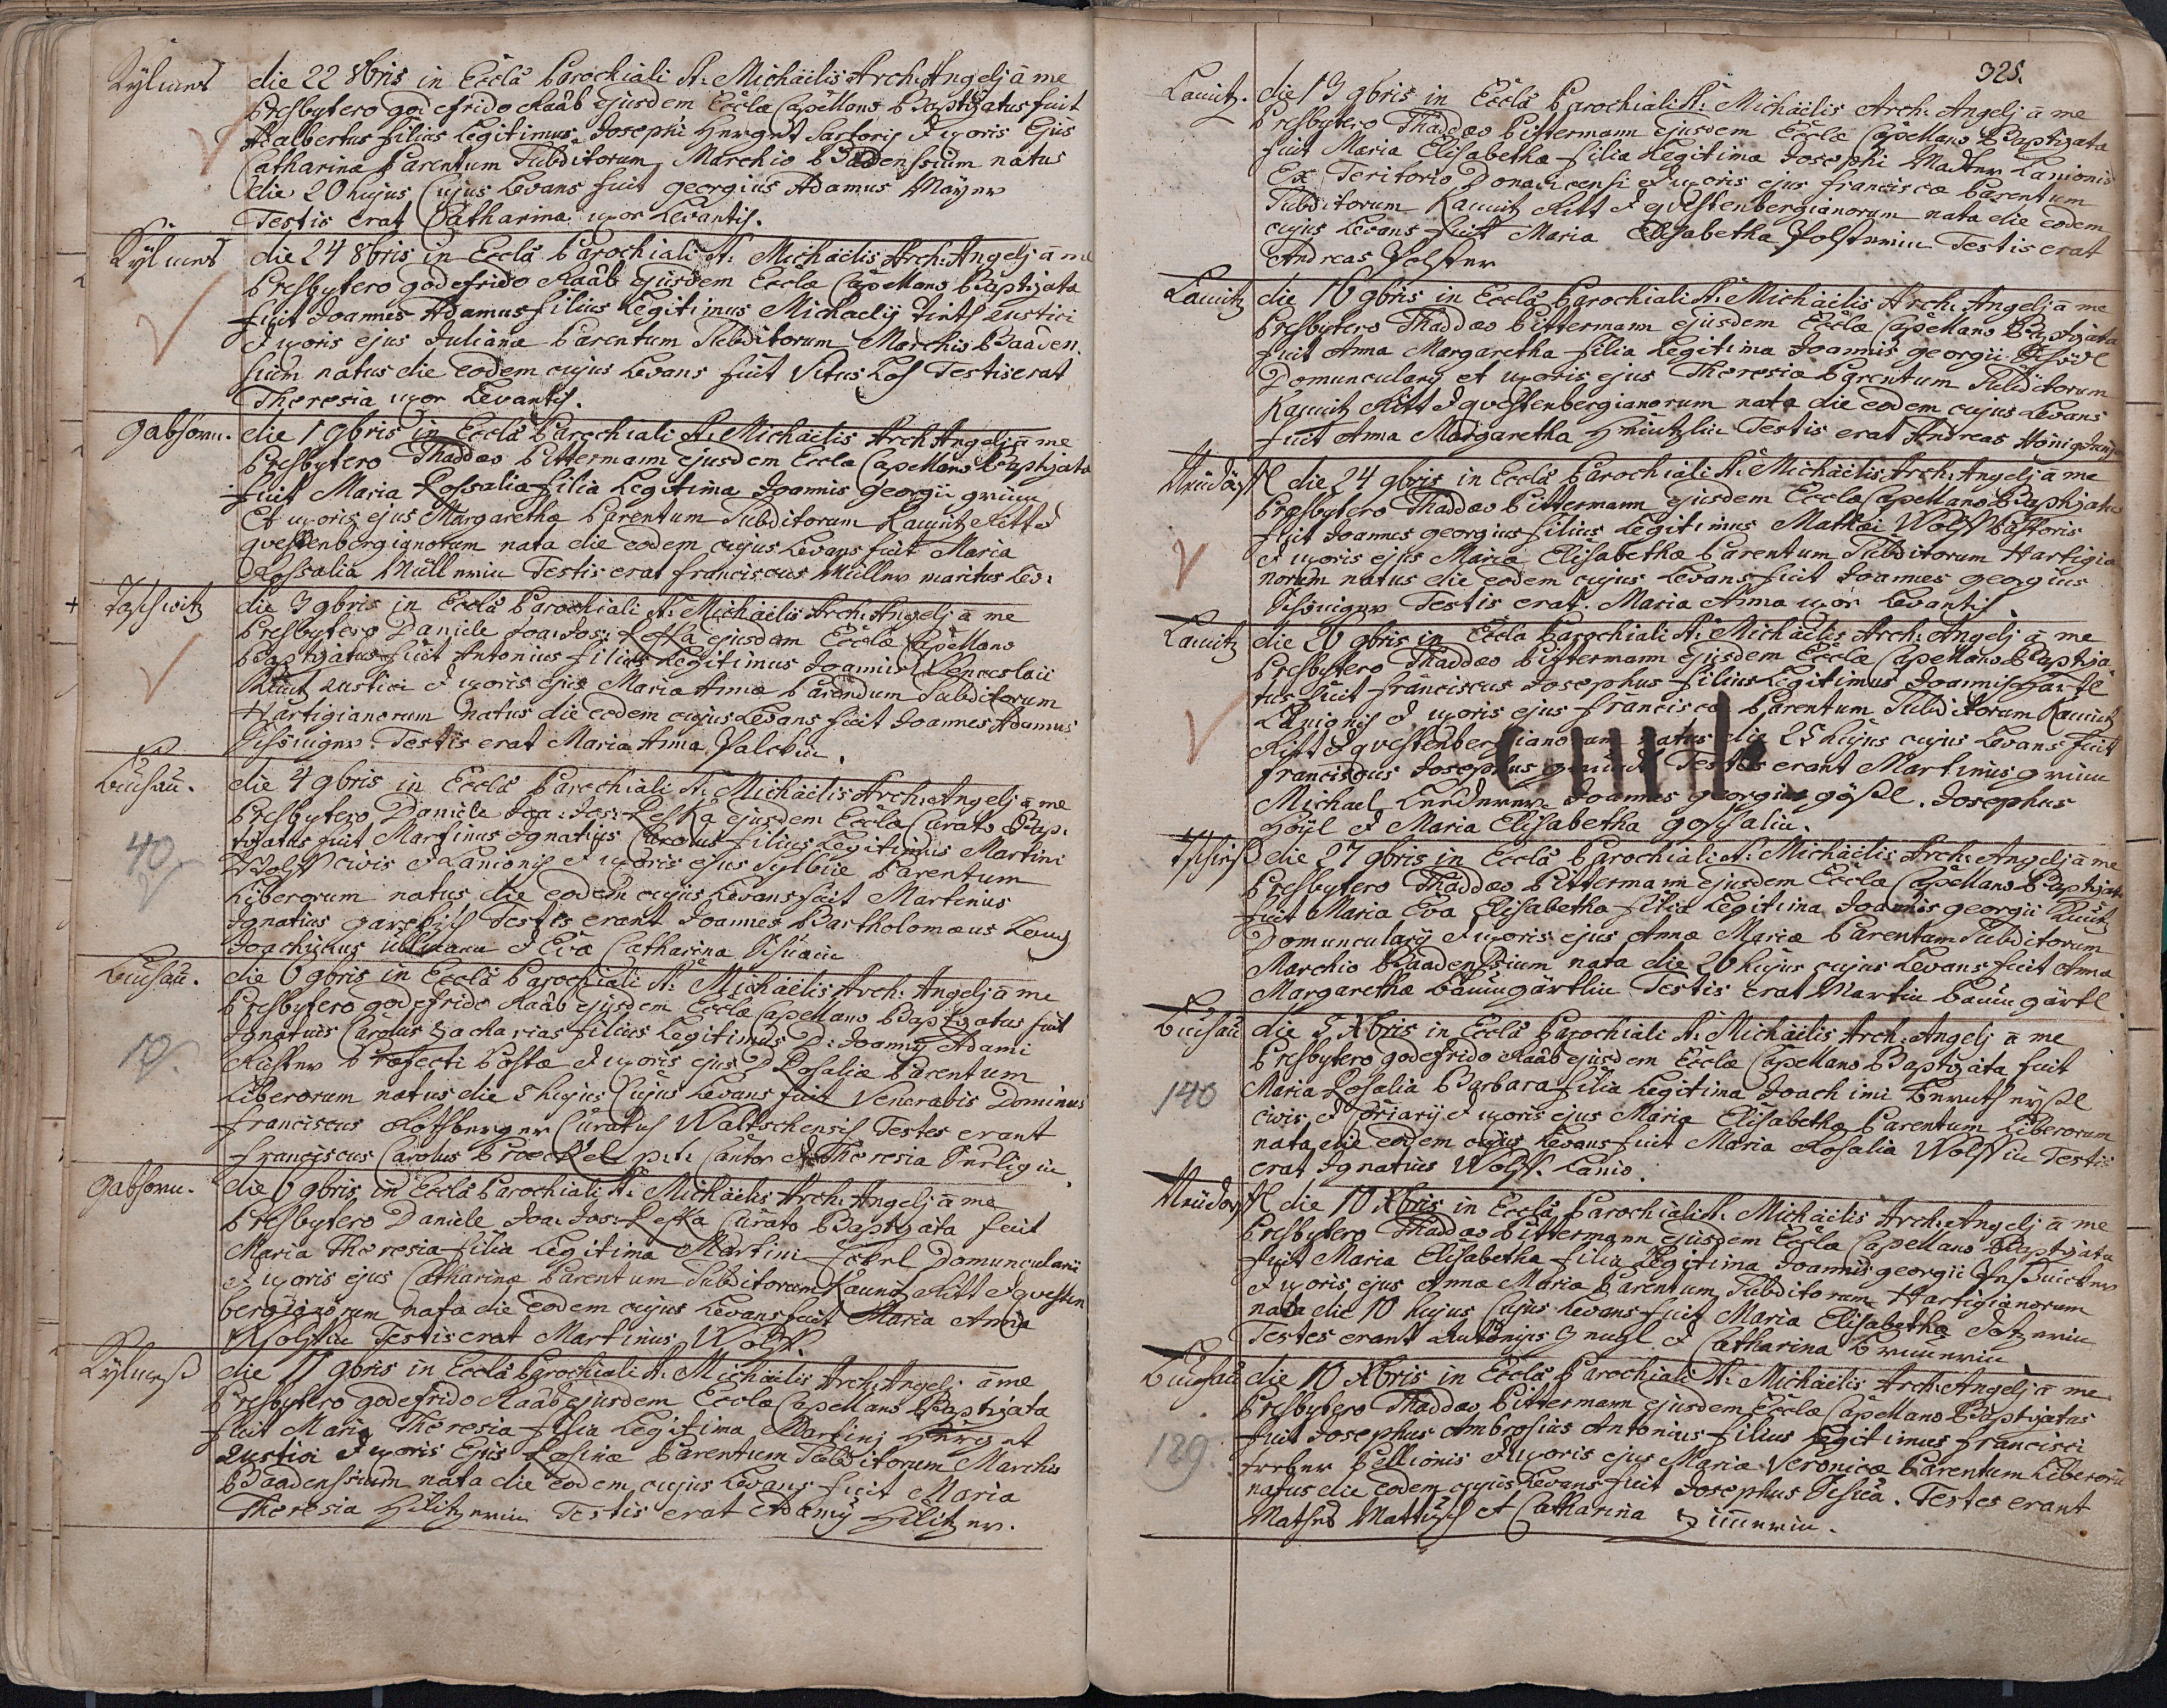 die 22 8bris in Eccla Parochiali S: Michäelis Arch: Angelj ā me
Presbytero godefrido Raab ejusdem Ecclæ Capellano Baptizatus fuit
Adalbertus filius Legitimus Josephi Herget Sartoris & uxoris Ejus
Catharinæ Parentum Subditorum Marchio Baadenssium natus
die 20 hujus Cujus Levans fuit georgius Adamus Mayer
Testis erat Catharina uxor Levantis.
die 24 8bris in Eccla Parochiali S: Michäelis Arch: Angelj ā me
Presbytero godefrido Raab ejusdem Ecclæ Capellano Baptizatus
fuit Joannes Adamus filius Legitimus Michaelis Rustici
& uxoris ejus Julianæ Parentum Subditorum Marchio Baaden
sium natus die eodem cujus Levans fuit Vitus Testis erat
Theresia uxor Levantis.
gabhorn. die 1 9bris in Eccla Parochiali S: Michäelis Arch Angelj ā me
Presbytero Thaddæo Pittermann ejusdem Ecclæ Capellano Baptizata
fuit Maria Rossalia filia Legitima Joannis Georgii grim
Et uxoris ejus Margarethæ Parentum Subditorum Kaunitz Ritt &
questenbergianorum nata die eodem cujus Levans fuit Maria
Rossalia Müllerin Testis erat franciscus Müller maritus Lev:
die 3 9bris in Eccla Parochiali S: Michäelis Arch: Angelj ā me
Presbytero Daniele Joa: Jos: Leska ejusdem Ecclæ Capellano
Baptizatus fuit Antonius filius Legitimus Joannis Wenceslai
Rustici & uxoris ejus Mariæ Annæ Parendum Subditorum
Hartigianorum natus die eodem cujus Levans fuit Joannes Adamus
Testis erat Maria Anna
Luchau. die 4 9bris in Eccla Parochiali S: Michäelis Arch: Angelj ā me
Presbytero Daniele Joa: Jos: Leska ejusdem Ecclæ Curato Bap:
40 tizatus fuit Martinus Ignatius Carolus filius Legitimus Martini
Wolff civis & Lanionis & uxoris ejus Sylbiæ Parentum
Liberorum natus die eodem cujus Levans fuit Martinus
Ignatius Testes erant Joannes Bartholomæus
Joachimus Ullmann & Eva Catharina
Luchau. die 6 9bris in Eccla Parochiali S: Michäelis Arch: Angelj ā me
Presbytero godefrido Raab ejusdem Ecclæ Capellano Baptizatus fuit
Ignatius Carolus Zacharias filius Legitimus D: Joannis Adami
Præfecti Postæ & uxoris ejus D Rosaliæ Parentum
Liberorum natus die 5 hujus Cujus Levans fuit Venerabis Dominus
franciscus Rothberger Curatus Waltschensis Testes erant
franciscus Carolus Broeckel p.t. Cantor & Theresia
gabhorn. die 6 9bris in Eccla Parochiali S: Michäelis Arch: Angelj ā me
Presbytero Daniele Joa: Jos: Leska Curato Baptizata fuit
Maria Theresia filia Legitima Martini Domuncularii
& uxoris ejus Catharinæ Parentum Subditorum Kaunitz Ritt & questen
bergianorum nata die eodem cujus Levans fuit Maria Anna
Wolffin Testis erat Martinus Wolff.
die 11 9bris in Eccla Parochiali S: Michäelis Arch: Angelj ā me
Presbytero godefrido Raab ejusdem Ecclæ Capellano Baptizata
fuit Maria Theresia filia Legitima Martinj Herget
Rustici & uxoris Ejus Rosinæ Parentum Subditorum Marchio
Baadenssium nata die eodem cujus Levans fuit Maria
Theresia Hilitzerin Testis erat Adamus Hilitzer.
325.
die 13 9bris in Eccla Parochiali S: Michäelis Arch: Angelj ā me
Presbytero Thaddæo Pittermann ejusdem Ecclæ Capellano Baptizata
fuit Maria Elisabetha filia Legitima Josephi Lanionis
Ex Teritorio & uxoris ejus franciscæ Parentum
Subditorum Kaunitz Ritt & questenbergianorum nata die eodem
cujus Levans fuit Maria Elisabetha Testis erat
Andreas
die 16 9bris in Eccla Parochiali S: Michäelis Arch: Angelj ā me
Presbytero Thaddæo Pittermann ejusdem Ecclæ Capellano Baptizata
fuit Anna Margaretha filia Legitima Joannis georgii
Domuncularij et uxoris ejus Theresiæ Parentum Subditorum
Kaunitz Ritt & questenbergianorum nata die eodem cujus Levans
fuit Anna Margaretha Testis erat Andreas
die 24 9bris in Eccla Parochiali S: Michäelis Arch: Angelj ā me
Presbytero Thaddæo Pittermann ejusdem Ecclæ Capellano Baptizatus
fuit Joannes georgius filius Legitimus Mathæi Wolff Pastoris
& uxoris ejus Mariæ Elisabethæ Parentum Subditorum Hartigia
norum natus die eodem cujus Levans fuit Joannes georgius
Testis erat Maria Anna uxor Levantis.
die 26 9bris in Eccla Parochiali S: Michäelis Arch: Angelj ā me
Presbytero Thaddæo Pittermann ejusdem Ecclæ Capellano Baptiza
tus fuit franciscus Josephus filius Legitimus Joannis
Lanionis & uxoris ejus franciscæ Parentum Subditorum Kaunitz
Ritt & questenbergianorum natus die 25 hujus cujus Levans fuit
franciscus Josephus Testes erant Martinus grim
Michael Joannes georgius göhl. Josephus
& Maria Elisabetha
die 27 9bris in Eccla Parochiali S: Michäelis Arch: Angelj ā me
Presbytero Thaddæo Pittermann ejusdem Ecclæ Capellano Baptizata
fuit Maria Eva Elisabetha filia Legitima Joannis georgii
Domuncularij & uxoris ejus Annæ Mariæ Parentum Subditorum
Marchio Baadenssium nata die 26 hujus cujus Levans fuit Anna
Margaretha Baumgärtlin Testis erat Martin Baumgärtl
Luchau die 5 Xbris in Eccla Parochiali S: Michäelis Arch: Angelj ā me
Presbytero godefrido Raab ejusdem Ecclæ Capellano Baptizata fuit
140 Maria Rosalia Barbara filia Legitima Joachimi
civis & & uxoris ejus Mariæ Elisabethæ Parentum Liberorum
nata die eodem cujus Levans fuit Maria Rosalia Wolffin Testis
erat Ignatius Wolff. Lanio.
die 10 Xbris in Eccla Parochiali S: Michäelis Arch: Angelj ā me
Presbytero Thaddæo Pittermann ejusdem Ecclæ Capellano Baptizata
fuit Maria Elisabetha filia Legitima Joannis georgii
& uxoris ejus Annæ Mariæ Parentum Subditorum Hartigianorum
nata die 10 hujus Cujus Levans fuit Maria Elisabetha
Testes erant Antonius & Catharina
Luchau die 10 Xbris in Eccla Parochiali S: Michäelis Arch: Angelj ā me
Presbytero Thaddæo Pittermann ejusdem Ecclæ Capellano Baptizatus
fuit Josephus Ambrosius Antonius filius Legitimus francisci
129. Pellionis & uxoris ejus Mariæ Veronicæ Parentum Liberorum
natus die eodem cujus Levans fuit Josephus Testes erant
et Catharina